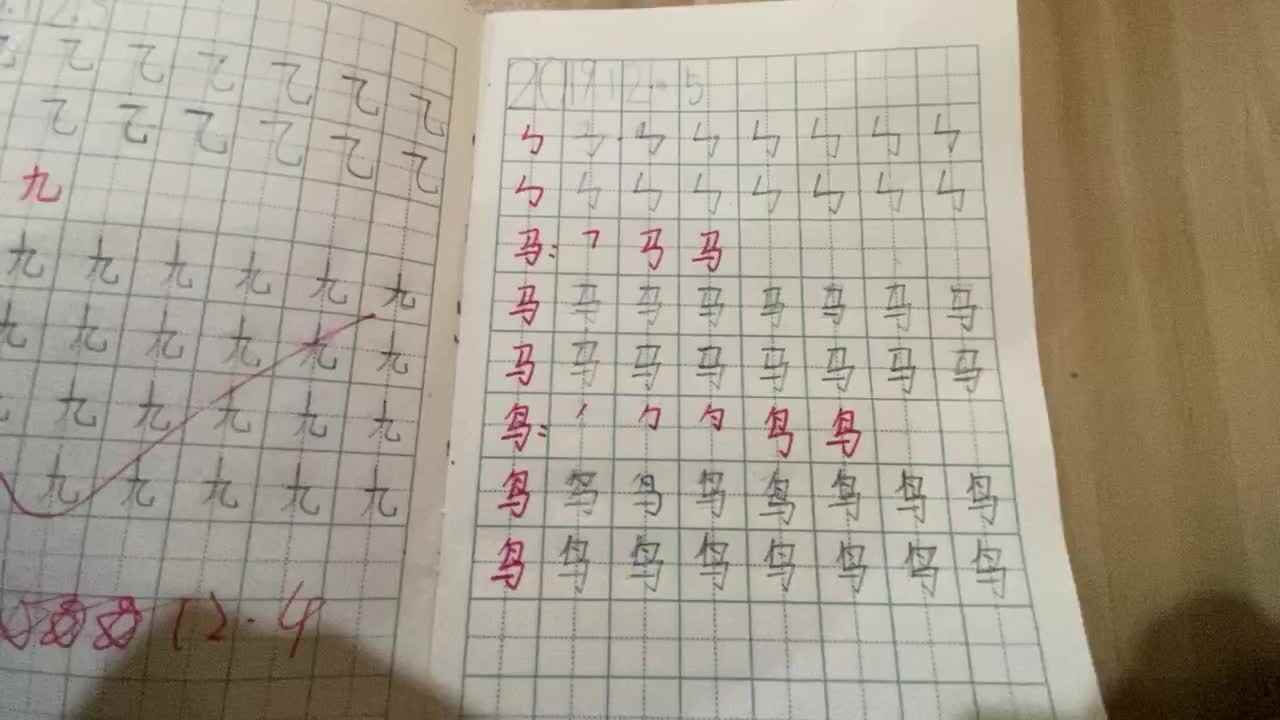 12.3
乙 乙 乙 乙 乙 乙
乙 乙 乙 乙 乙 乙
九
九 九 九 九 九 九
九 九 九 九 九 九
九 九 九 九 九
九 九 九 九 九
12.4
2019 12.5
㇉ ㇉ ㇉ ㇉ ㇉ ㇉ ㇉ ㇉
㇉ ㇉ ㇉ ㇉ ㇉ ㇉ ㇉ ㇉
马: ㇕ 马 马
马 马 马 马 马 马 马 马
马 马 马 马 马 马 马 马
鸟: ㇒ 勹 勺 鸟 鸟
鸟 鸟 鸟 鸟 鸟 鸟 鸟 鸟
鸟 鸟 鸟 鸟 鸟 鸟 鸟 鸟